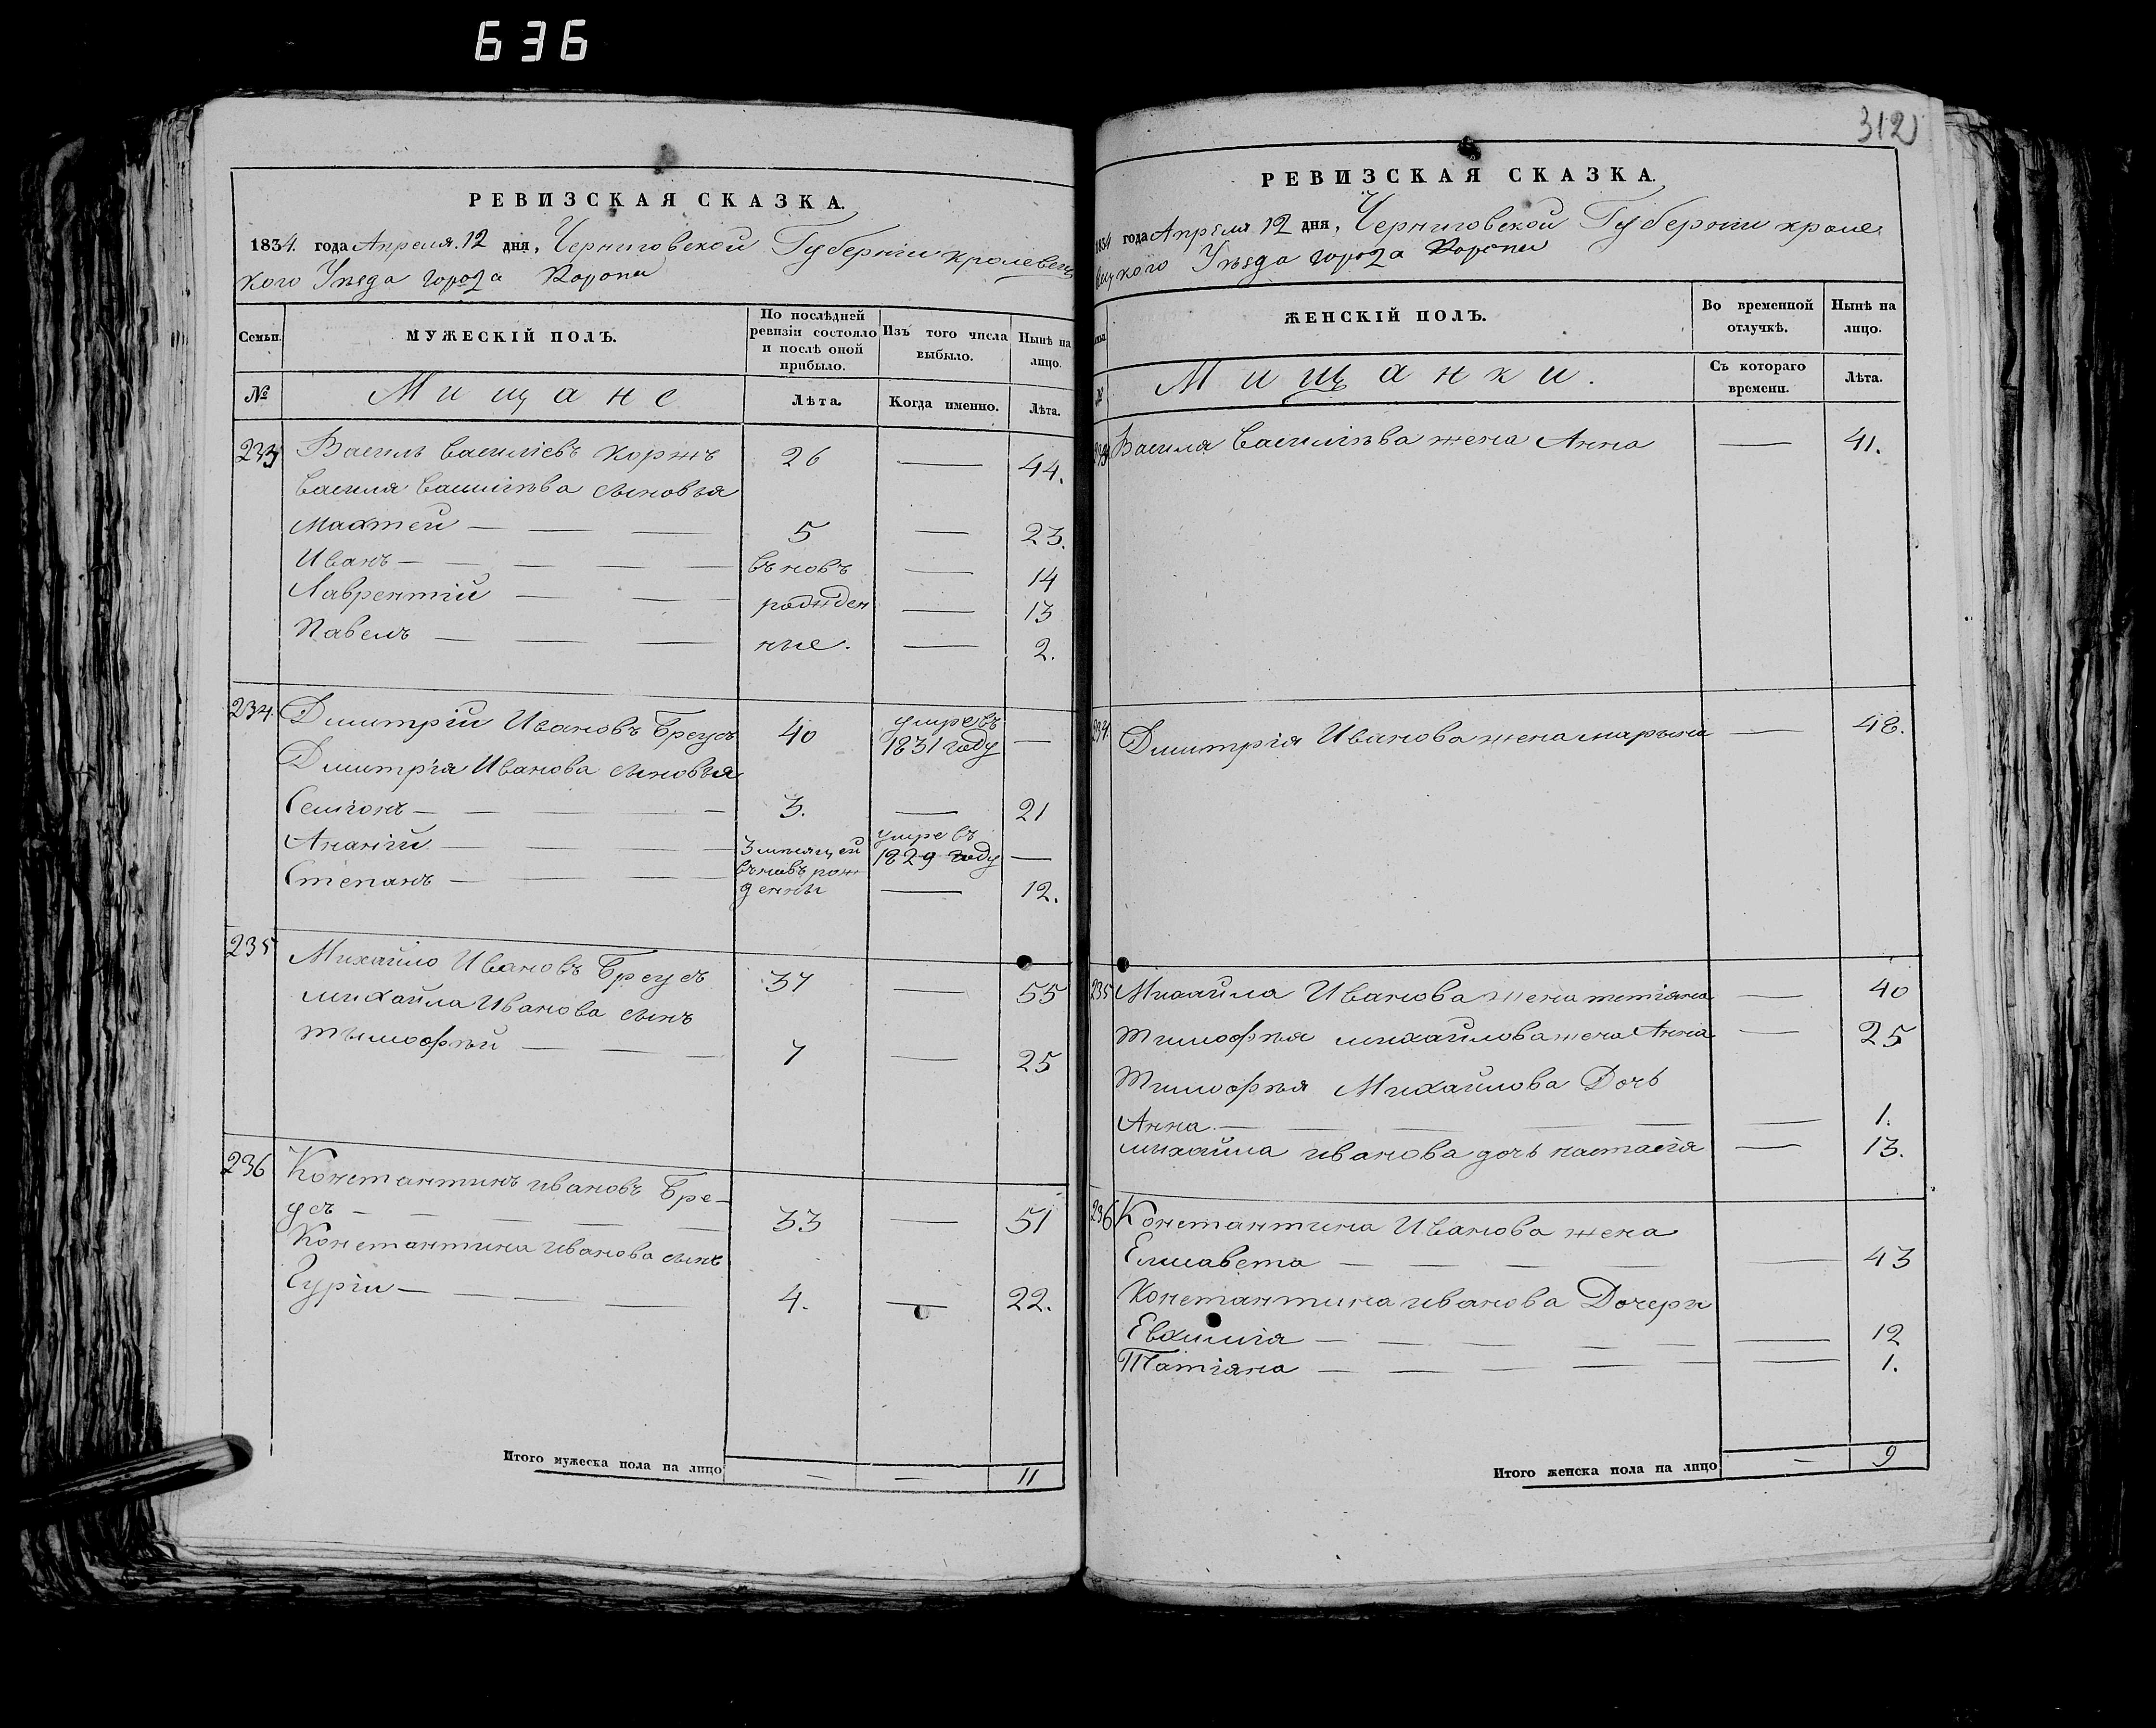 636
РЕВИЗСКАЯ СКАЗКА.
1834. года Апреля. 12 дня, Черниговской Губерніи кролевец
кого Уезда города Коропа
Семьи. МУЖЕСКІЙ ПОЛЪ. По послѣдней ревизіи состояло и послѣ оной прибыло. Изъ того числа выбыло. Нынѣ на лицо.
№ Мищане Лѣта. Когда именно. Лѣта.
233 Василь Василіевъ Коржъ 26 — 44.
Василя Василіева сыновья
Махтей — — — 5 — 23.
Иванъ — — — — — въновъ — 14
Лаврентій — — рожден — 13
Павелъ — — — ные. — 2.
234. Дмитрій Ивановъ Бреусъ 40 умре въ 1831 году —
Дмитрія Иванова сыновья
Семіонъ — — — — 3. — 21
Ананій — — — — 3 месяцей умре въ 1829 году —
Степанъ — — — — въновъ рож денны — 12.
235 Михайло Ивановъ Бреусъ 37 — 55
михайла Иванова сынъ
тымофѣй — — — 7 — 25
236 Константинъ ивановъ Бре-
усъ — — — — — 33 — 51
Константина иванова сынъ
Гурій — — — — 4. — 22.
Итого мужеска пола на лицо — — 11
312
РЕВИЗСКАЯ СКАЗКА.
1834 года Апреля 12 дня, Черниговской Губерніи кроле
вецкого Уезда города Коропа
ЖЕНСКІЙ ПОЛЪ. Во временной отлучкѣ. Нынѣ на лицо.
№ Мищанки. Съ котораго времени. Лѣта.
233 Василя Василѣва жена Анна — 41.
234 Дмитрія Иванова жена марына — 48.
235 Михайла Иванова жена тетіяна — 40
Тимофѣя михайлова жена Анна — 25
Тимофѣя Михайлова Дочь
Анна. — — — — — 1.
михайла иванова дочь настасія — 13.
236 Константина Иванова жена
Елисавета — — — — — 43
Константина иванова Дочери
Евхимія — — — — — — 12
Татіяна — — — — — — 1.
Итого женска пола на лицо — 9